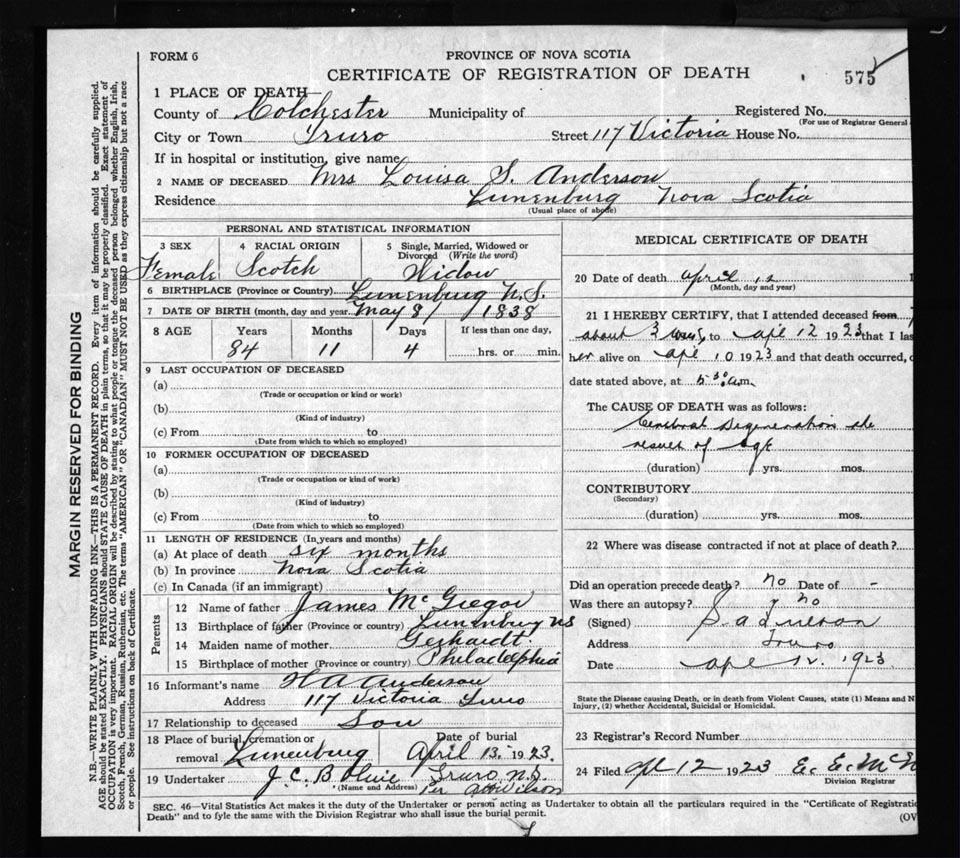 FORM 6
PROVINCE OF NOVA SCOTIA
CERTIFICATE OF REGISTRATION OF DEATH
575
1 PLACE OF DEATH—
County of Colchester Municipality of Registered No.
(For use of Registrar General
City or Town Truro Street 117 Victoria House No.
If in hospital or institution, give name
2 NAME OF DECEASED Mrs Louisa S. Anderson
Residence Lunenburg Nova Scotia
(Usual place of abode)
PERSONAL AND STATISTICAL INFORMATION
3 SEX 4 RACIAL ORIGIN 5 Single, Married, Widowed or Divorced (Write the word)
Female Scotch Widow
6 BIRTHPLACE (Province or Country) Lunenburg N.S.
7 DATE OF BIRTH (month, day and year. May 8/ 1838
8 AGE Years Months Days If less than one day,
84 11 4 hrs. or min.
9 LAST OCCUPATION OF DECEASED
(a)
(Trade or occupation or kind or work)
(b)
(Kind of industry)
(c) From to
(Date from which to which so employed)
10 FORMER OCCUPATION OF DECEASED
(a)
(Trade or occupation or kind of work)
(b)
(Kind of industry)
(c) From to
(Date from which to which so employed)
11 LENGTH OF RESIDENCE (In years and months)
(a) At place of death six months
(b) In province Nova Scotia
(c) In Canada (if an immigrant)
Parents
12 Name of father James McGregor
13 Birthplace of father (Province or country) Lunenburg NS
14 Maiden name of mother Gerhardt.
15 Birthplace of mother (Province or country) Philadelphia
16 Informant's name H A Anderson
Address 117 Victoria Truro
17 Relationship to deceased Son
18 Place of burial, cremation or removal Lunenburg Date of burial April 13. 1923.
19 Undertaker J. C. B. Truro N.S.
(Name and Address) Per Wilson
MEDICAL CERTIFICATE OF DEATH
20 Date of death April 12
(Month, day and year)
21 I HEREBY CERTIFY, that I attended deceased from
about 3 to Apl 12 1923 that I las
her alive on Apl 10 1923 and that death occurred,
date stated above, at 5.30 a.m.
The CAUSE OF DEATH was as follows:
Cerebral Degeneration the
result of age
(duration) yrs. mos.
CONTRIBUTORY
(Secondary)
(duration) yrs. mos.
22 Where was disease contracted if not at place of death?
Did an operation precede death? no Date of -
Was there an autopsy? no
(Signed)
Address Truro
Date Apl 12. 1923
State the Disease causing Death, or in death from Violent Causes, state (1) Means and N
Injury, (2) whether Accidental, Suicidal or Homicidal.
23 Registrar's Record Number
24 Filed Apl 12 1923 E. E. McN
Division Registrar
SEC. 46—Vital Statistics Act makes it the duty of the Undertaker or person acting as Undertaker to obtain all the particulars required in the "Certificate of Registratio
Death" and to fyle the same with the Division Registrar who shall issue the burial permit.
(OV
MARGIN RESERVED FOR BINDING
N.B.—WRITE PLAINLY WITH UNFADING INK—THIS IS A PERMANENT RECORD. Every item of information should be carefully supplied.
AGE should be stated EXACTLY. PHYSICIANS should STATE CAUSE OF DEATH in plain terms, so that it may be properly classified. Exact statement of
OCCUPATION is very important. RACIAL ORIGIN will be described by stating to what people or tongue the deceased person belonged whether English, Irish,
Scotch, French, German, Russian, Ruthenian, etc. The terms "AMERICAN" OR "CANADIAN" MUST NOT BE USED as they express citizenship but not a race
or people. See instructions on back of Certificate.